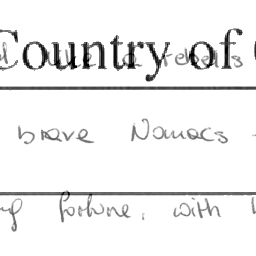 Country of
a rebels
brave Nomacs -
fortune, with